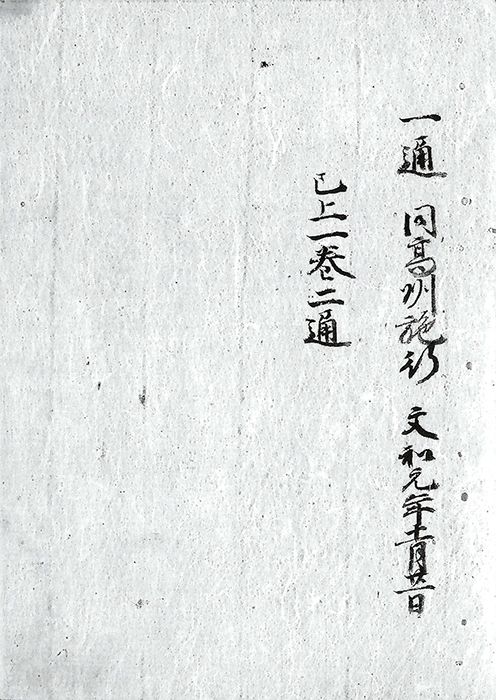 一通 同高州施行 文和元年十二月廿一日
已上一巻二通